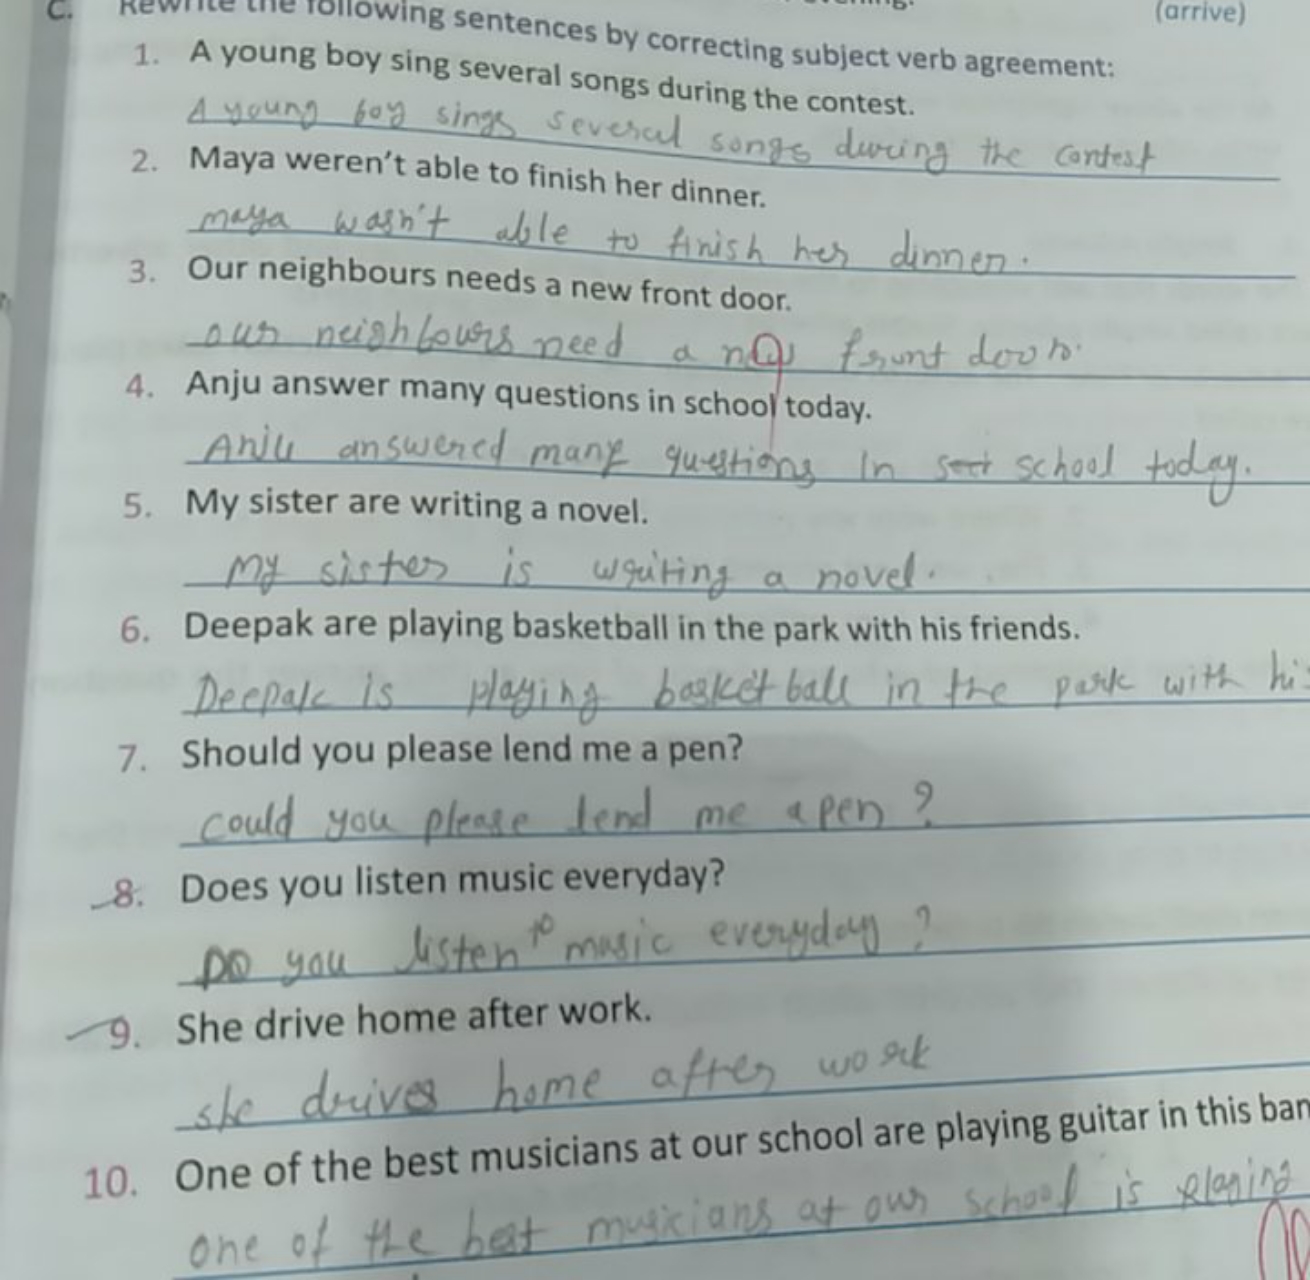 C. Rewrite the following sentences by correcting subject verb agreement:
(arrive)
1. A young boy sing several songs during the contest.
A young boy sings several songs during the contest
2. Maya weren't able to finish her dinner.
maya wasn't able to finish her dinner.
3. Our neighbours needs a new front door.
our neighbours need a new front door.
4. Anju answer many questions in school today.
Anju answered many questions In school today.
5. My sister are writing a novel.
My sister is writing a novel.
6. Deepak are playing basketball in the park with his friends.
Deepak is playing basketball in the park with his
7. Should you please lend me a pen?
could you please lend me a pen ?
8. Does you listen music everyday?
Do you listen to music everyday ?
9. She drive home after work.
she drives home after work
10. One of the best musicians at our school are playing guitar in this ban
one of the best musicians at our school is playing